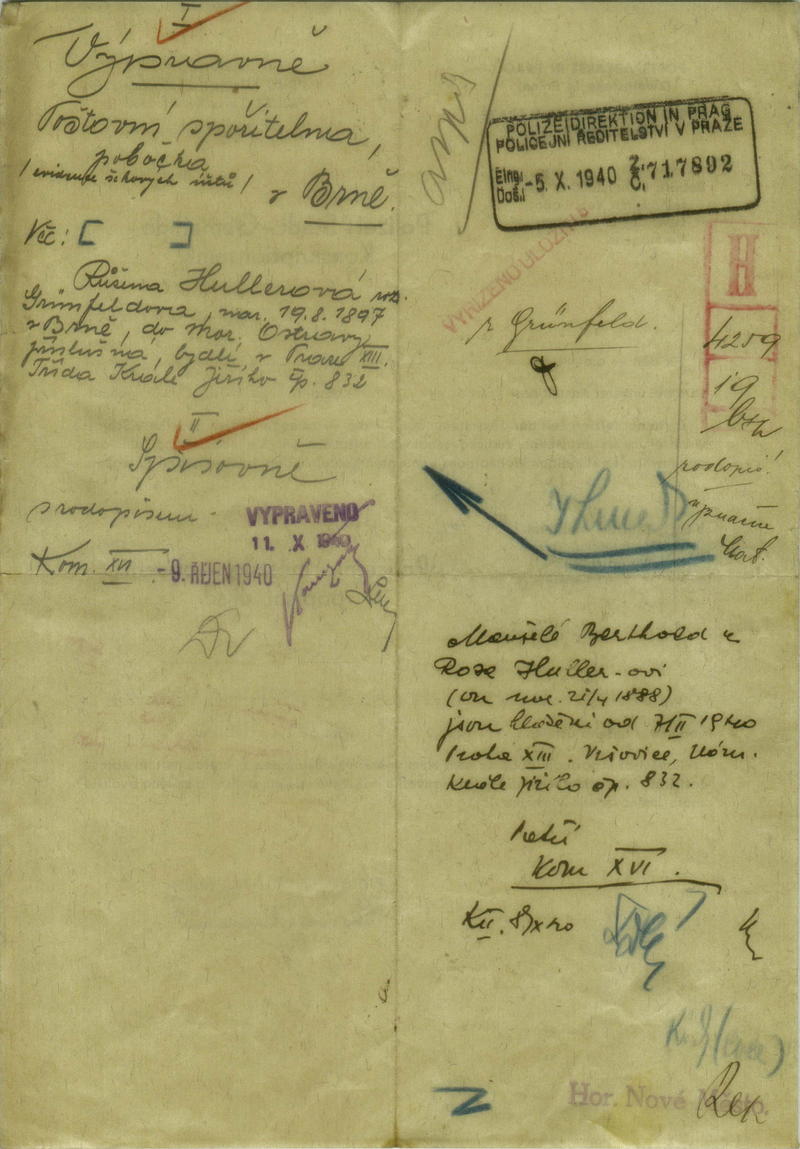 I
Výpravně
Poštovní spořitelna,
pobočka
/ evidence šekových účtů /
v Brně.
Věc: [ ]
Růžena Hullerová roz.
Grünfeldova, nar. 19.8.1897
v Brně, do Mor. Ostravy
příslušná, bydlí v Praze XIII.
Třída Krále Jiřího čp. 832
II
Spisovně
s rodopisem
VYPRAVENO
11. X 1940
Kom. XVI
-9. ŘÍJEN 1940
POLIZEIDIREKTION IN PRAG
POLICEJNÍ ŘEDITELSTVÍ V PRAZE
Eing.
Doš. -5. X. 1940 Z. Č. 717892
VYŘÍZENO ULOŽIT
r Grünfeld.
H
4259
19
rodopis!
Manželé Berthold a
Rosa Huller-ovi
(on nar. 21/4 1888)
jsou hlášeni od 7/II 1940
Praha XIII. Vršovice, Nám.
Krále Jiřího čp. 832.
Kom XVI.
XII. 8/X 40
Hor. Nové Město.